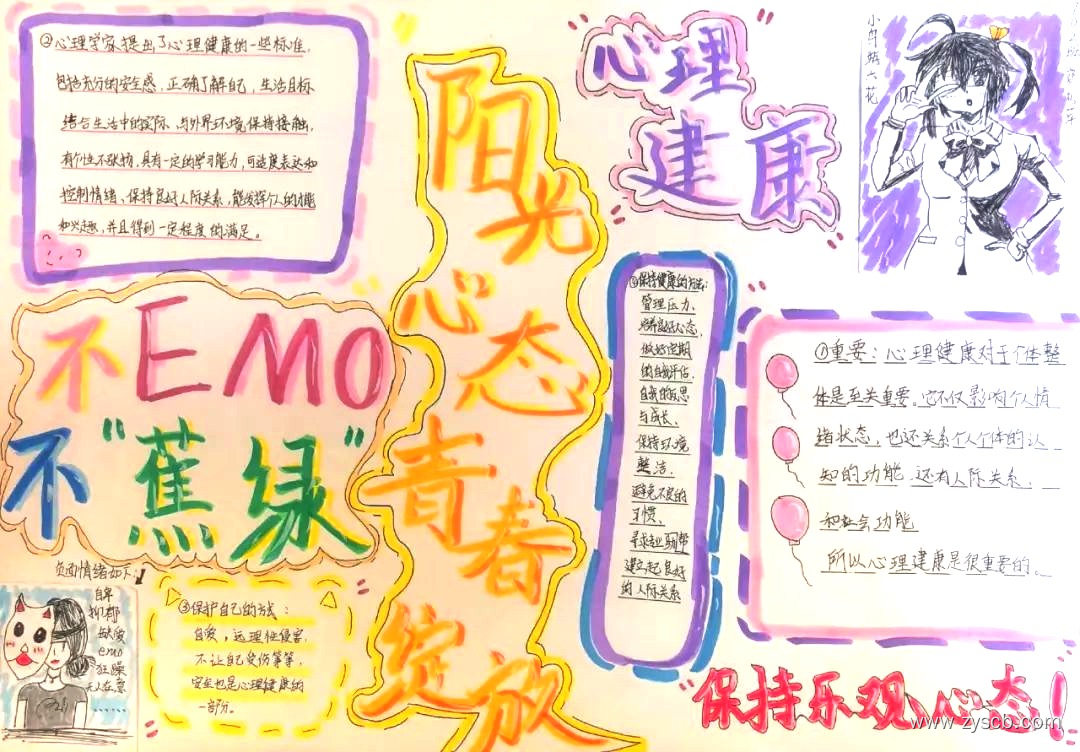 ②心理学家提出了心理健康的一些标准，
包括充分的安全感，正确了解自己，生活目标
结合生活中的实际，与外界环境保持接触，
有个性不缺损，具有一定的学习能力，可适度表达和
控制情绪、保持良好人际关系，能发挥个人的才能
和兴趣，并且得到一定程度的满足。
不EMO
不"蕉绿"
负面情绪如下：
自卑
抑郁
emo
狂躁
无人在意
......
③保护自己的方式：
自爱，远理性侵害
不让自己受伤等等，
安全也是心理健康的
一部分。
阳光
心态
青春
绽放
心理
建康
④保持健康的方法：
管理压力、
培养良好心态，
做好定期
的自我评估，
自我的反思
与成长、
保持环境
整洁，
避免不良的
习惯、
寻求专业的帮
建立起良好
的人际关系
小鸟游六花
①重要：心理健康对于个体整
体是至关重要。它不仅影响个人情
绪状态，也还关系个人个体的认
知的功能，还有人际关系，
和社会功能
所以心理建康是很重要的。
保持乐观心态！
www.zyscb.com